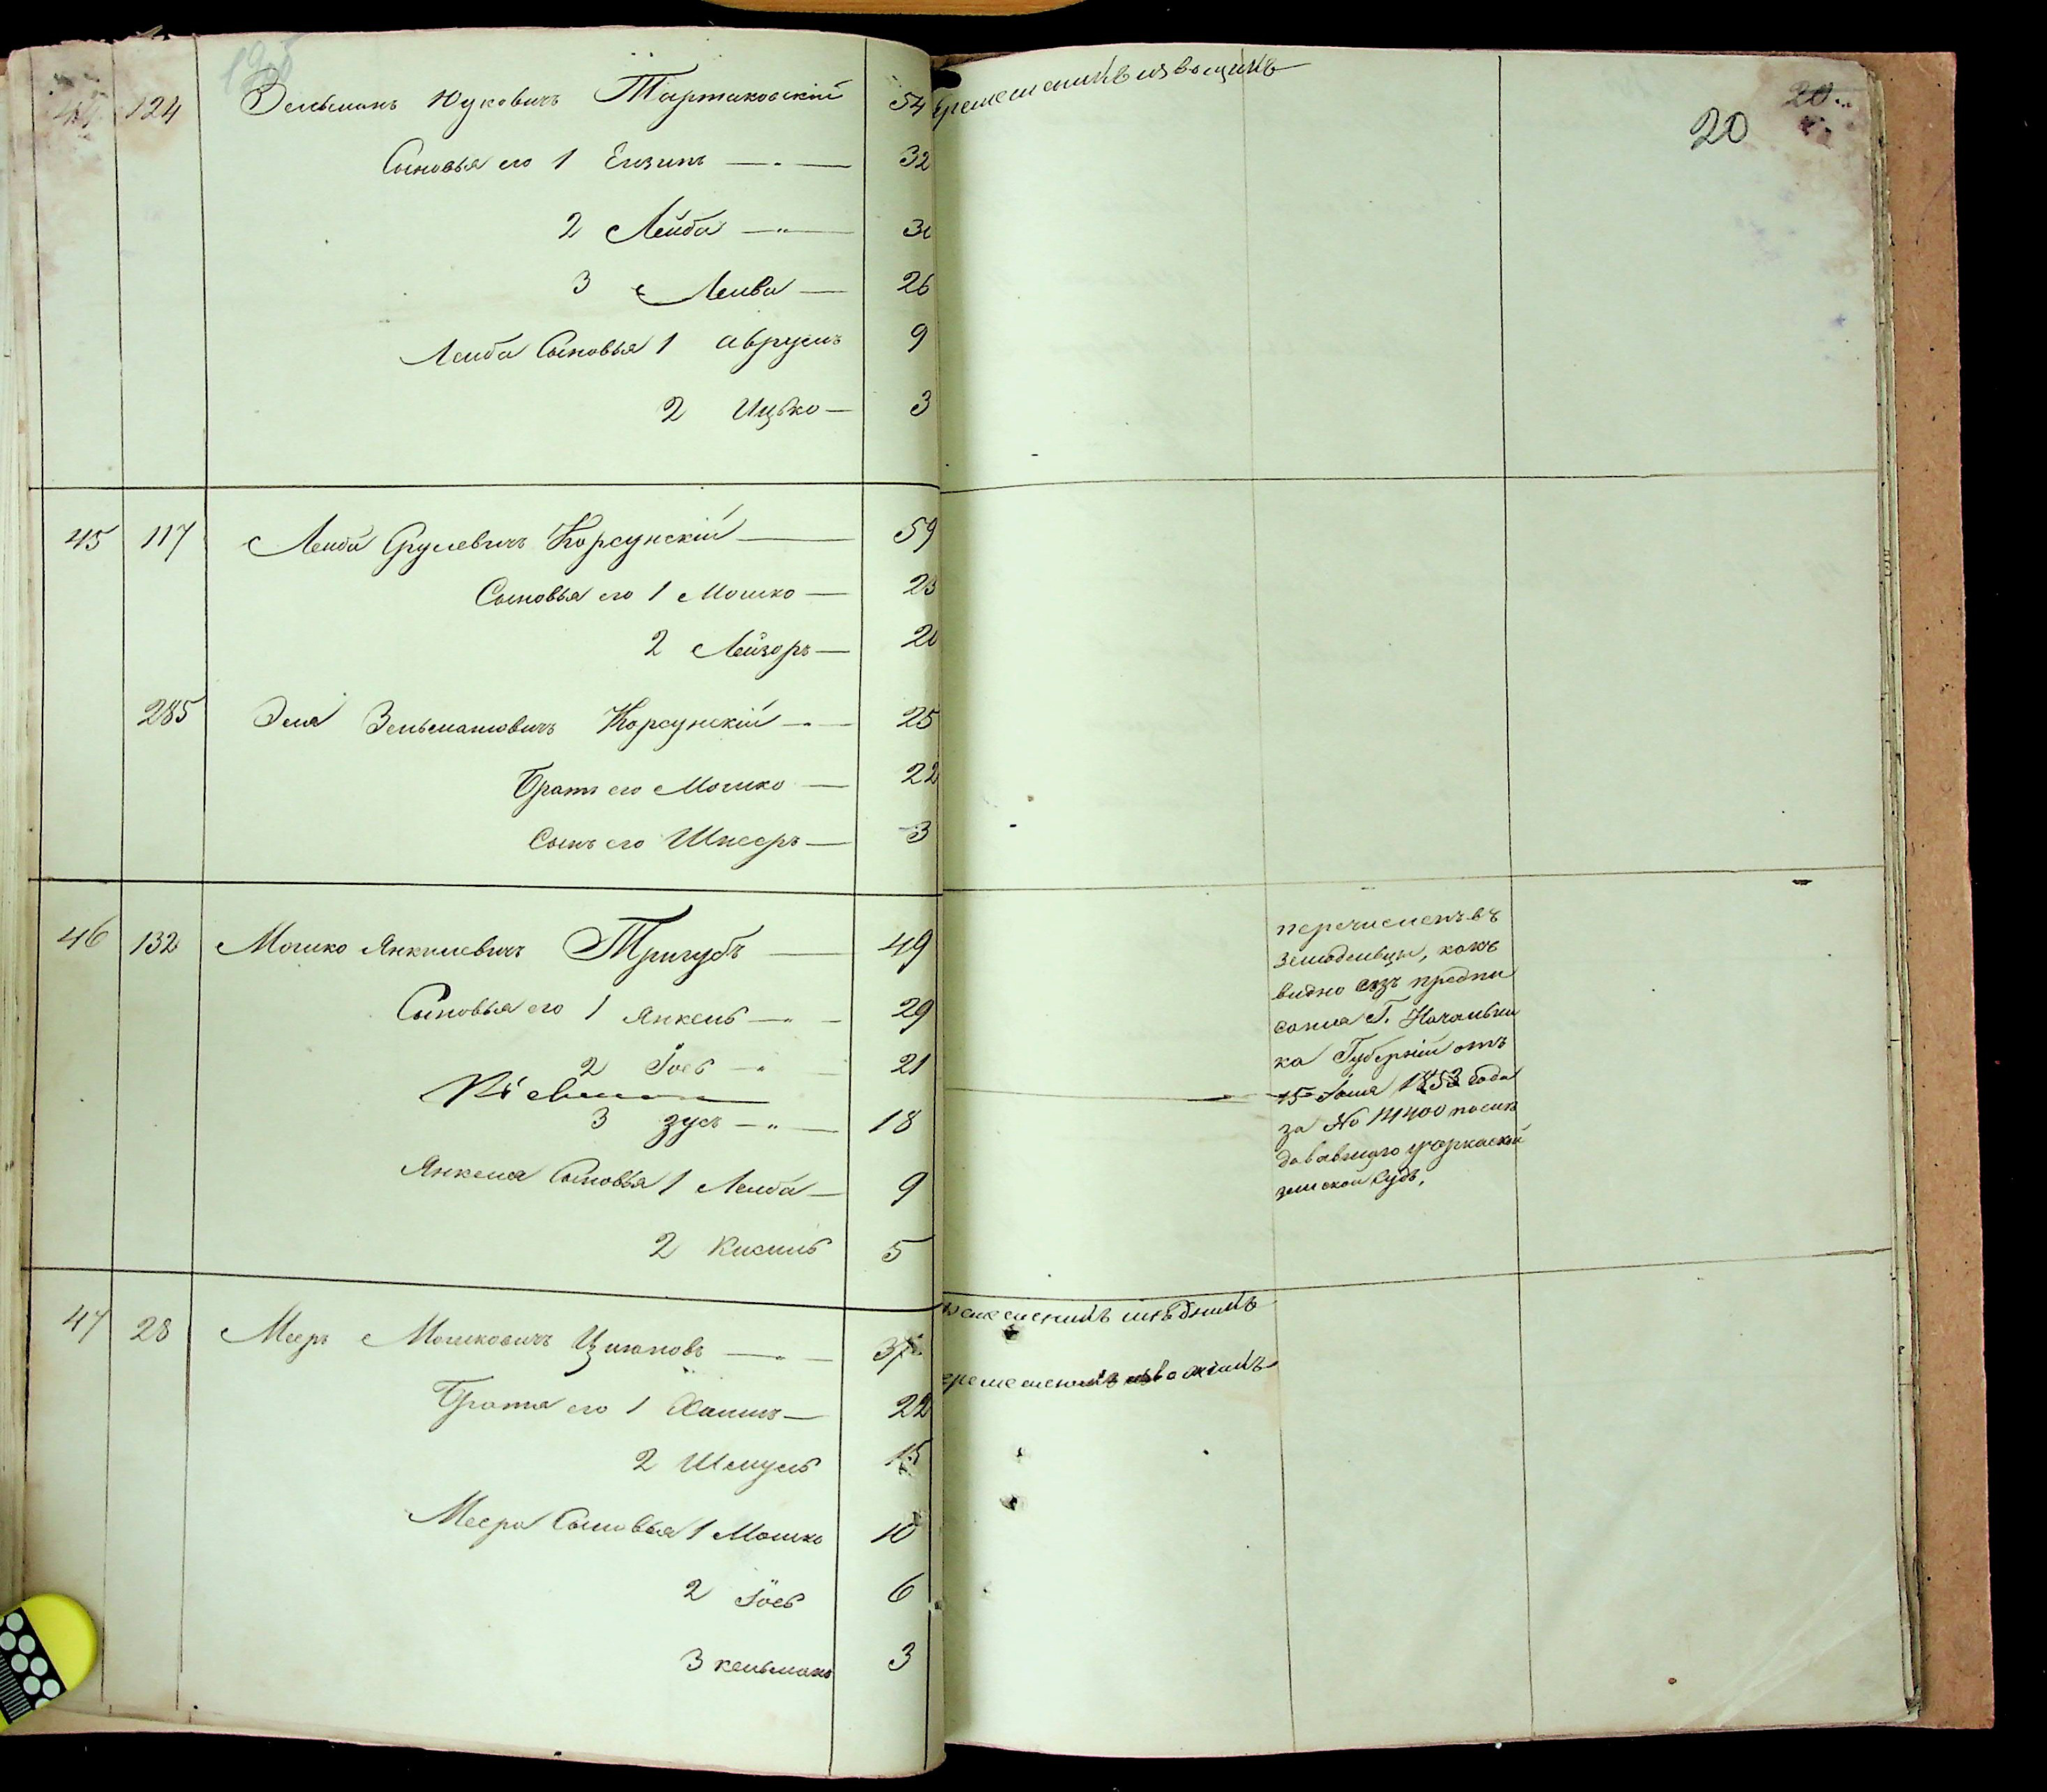 44 124 Зельманъ Юуковичъ Тартаковскій 54
Сыновья его 1 Ензипъ 32
2 Лейба 30
3 Лейва 26
Лейба Сыновья 1 Аврумъ 9
2 Ицько 3
45 117 Лейба Срулевичъ Корсунскій 59
Сыновья его 1 Мошко 23
2 Лейзоръ 20
285 Эля Зельмановичъ Корсунскій 25
Братъ его Мошко 22
Сынъ его Шнееръ 3
46 132 Мошко Янкилевичъ Тригубъ 49
Сыновья его 1 Янкель 29
2 Іось 21
3 Зусь 18
Янкеля Сыновья 1 Лейба 9
2 Кисиль 5
47 28 Мееръ Мошковичъ Цигановъ 37
Братья его 1 Хаимъ 22
2 Шмуль 15
Меера Сыновья 1 Мошко 10
2 Іось 6
3 Кельманъ 3
20
20
перечисленъ въ
земледельцы, какъ
видно изъ предпи
сания Г. Начальни
ка Губерніи отъ
15 1853 года
за No 14400 послѣ
довавшаго черкаскій
земской Судъ.